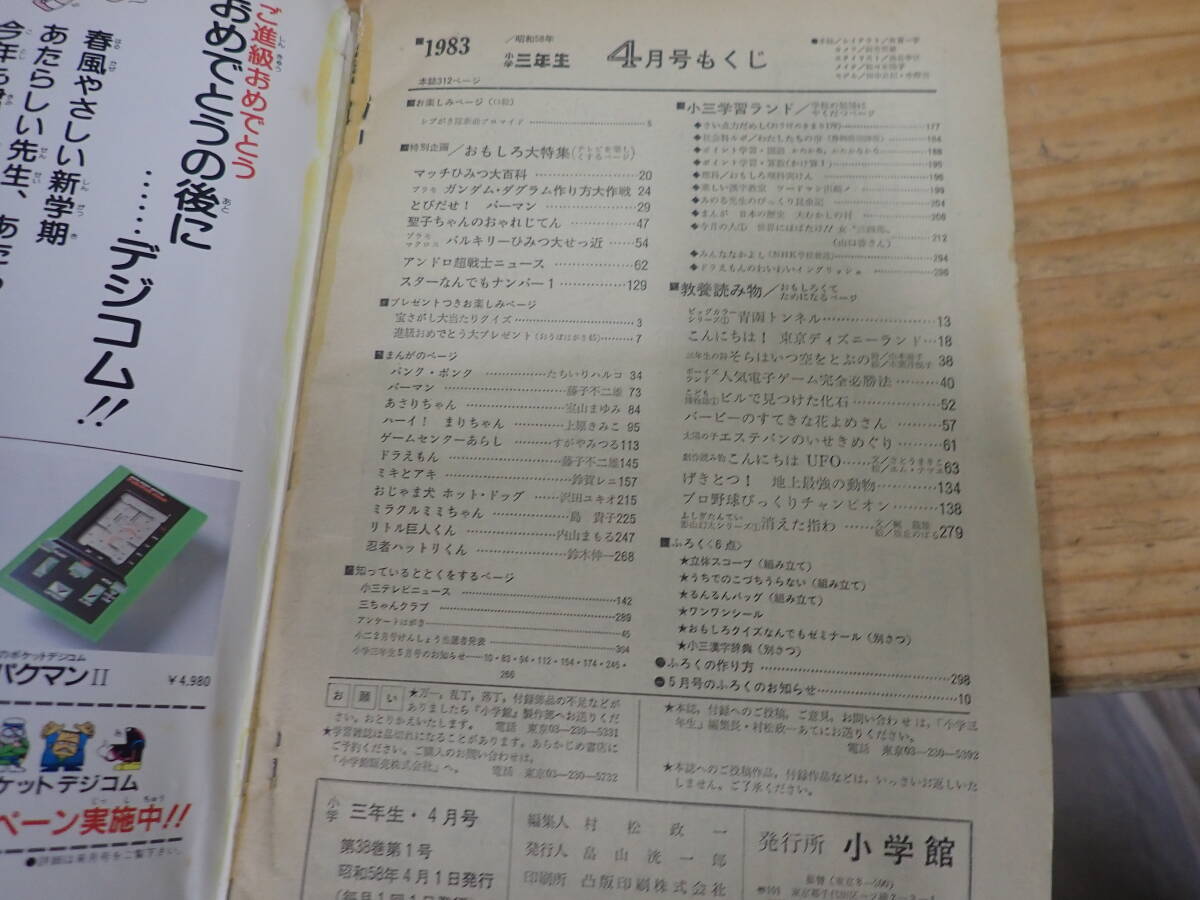 ご進級おめでとう
おめでとうの後に
……デジコム!!
春風やさしい新学期
あたらしい先生、あた
今年も
のポケットデジコム
パクマンII
¥4,980
ケットデジコム
ペーン実施中!!
●詳細は来月号をご覧下さい。
1983 /昭和58年
小学三年生 4月号もくじ
本誌312ページ
■お楽しみページ(口絵)
5
■特別企画/おもしろ大特集(テレビを楽しくするページ)
マッチひみつ大百科 20
プラモ ガンダム・ダグラム作り方大作戦 24
とびだせ! パーマン 29
聖子ちゃんのおゃれじてん 47
プラモ マクロス バルキリーひみつ大せっ近 54
アンドロ超戦士ニュース 62
スターなんでもナンバー1 129
■プレゼントつきお楽しみページ
宝さがし大当たりクイズ 3
進級おめでとう大プレゼント(おうぼはがき45) 7
■まんがのページ
パンク・ポンク たちいりハルコ 34
パーマン 藤子不二雄 73
あさりちゃん 室山まゆみ 84
ハーイ! まりちゃん 上原きみこ 95
ゲームセンターあらし すがやみつる 113
ドラえもん 藤子不二雄 145
ミキとアキ 鈴賀レニ 157
おじゃま犬 ホット・ドッグ 沢田ユキオ 215
ミラクルミミちゃん 島 貴子 225
リトル巨人くん 内山まもる 247
忍者ハットリくん 鈴木伸一 268
■知っているととくをするページ
小三テレビニュース 142
三ちゃんクラブ 289
アンケートはがき 45
小二2月号けんしょう当選者発表 304
小学三年生5月号のお知らせ 10・83・94・112・154・174・246・266
■小三学習ランド/学校の勉強にやくだつページ
177
184
188
◆ポイント学習・算数(かけ算1) 195
◆理科/おもしろ理科実けん 196
◆楽しい漢字教室 199
◆みのる先生のびっくり昆虫記 204
◆まんが 日本の歴史 大むかしの村 208
◆今月の人① 世界にはばたけ!! 女
(山口香さん) 212
◆みんななかよし(NHK学校放送) 294
◆ドラえもんのわいわいイングリッシュ 296
■教養読み物/おもしろくてためになるページ
ビッグカラーシリーズ① 青函トンネル 13
こんにちは! 東京ディズニーランド 18
三年生の詩 そらはいつ空をとぶの 38
ボーイズランド 人気電子ゲーム完全必勝法 40
こども博物館① ビルで見つけた化石 52
バービーのすてきな花よめさん 57
太陽の子エステバンのいせきめぐり 61
創作読み物 こんにちは UFO 63
げきとつ! 地上最強の動物 134
プロ野球びっくりチャンピオン 138
ふしぎたんてい 影山幻太シリーズ① 消えた指わ 279
■ふろく〈6点〉
★立体スコープ(組み立て)
★うちでのこづちうらない(組み立て)
★るんるんバッグ(組み立て)
★ワンワンシール
★おもしろクイズなんでもゼミナール(別さつ)
★小三漢字辞典(別さつ)
●ふろくの作り方 298
●5月号のふろくのお知らせ 10
お願い
★万一、乱丁、落丁、付録部品の不足などが
ありましたら『小学館』製作部へお送りくだ
さい。おとりかえいたします。 電話 東京03-230-5331
★学習雑誌は品切れになることがあります。あらかじめ書店に
ご予約ください。ご購入のお問い合わせは、
「小学館販売株式会社」へ。 電話 東京03-230-5732
★本誌、付録へのご投稿、ご意見、お問い合わせは、「小学三
年生」編集長・村松政一あてにお送りください。
電話 東京03-230-5392
★本誌へのご投稿作品、付録作品などは、いっさいお返しいた
しません。ご了承ください。
小学三年生・4月号
第38巻第1号
昭和58年4月1日発行
(毎月1回1日発行
編集人 村松政一
発行人 畠山滉一郎
印刷所 凸版印刷株式会社
発行所 小学館